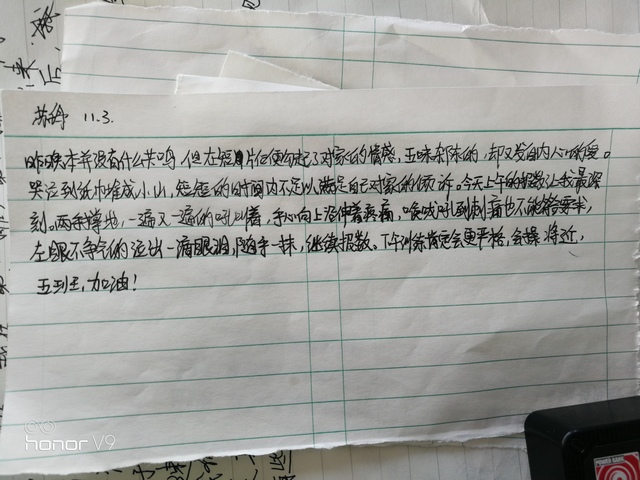 苏 11.3.
昨晚本并没有什么共鸣,但在短片后便勾起了对家的情感,五味杂陈的,却又发自内心的爱。
哭泣到纸巾堆成小山,短短的时间内不足以满足自己对家的倾诉。今天上午的报数让我最深
刻。两手撑地,一遍又一遍的吼叫着,手心向上沿伸着疼痛,喉咙吼到刺痛也不能符合要求,
左眼不争气的流出一滴眼泪,随手一抹,继续报数。下午训练肯定会更严格,会操将近,
五班,加油!
honor V9